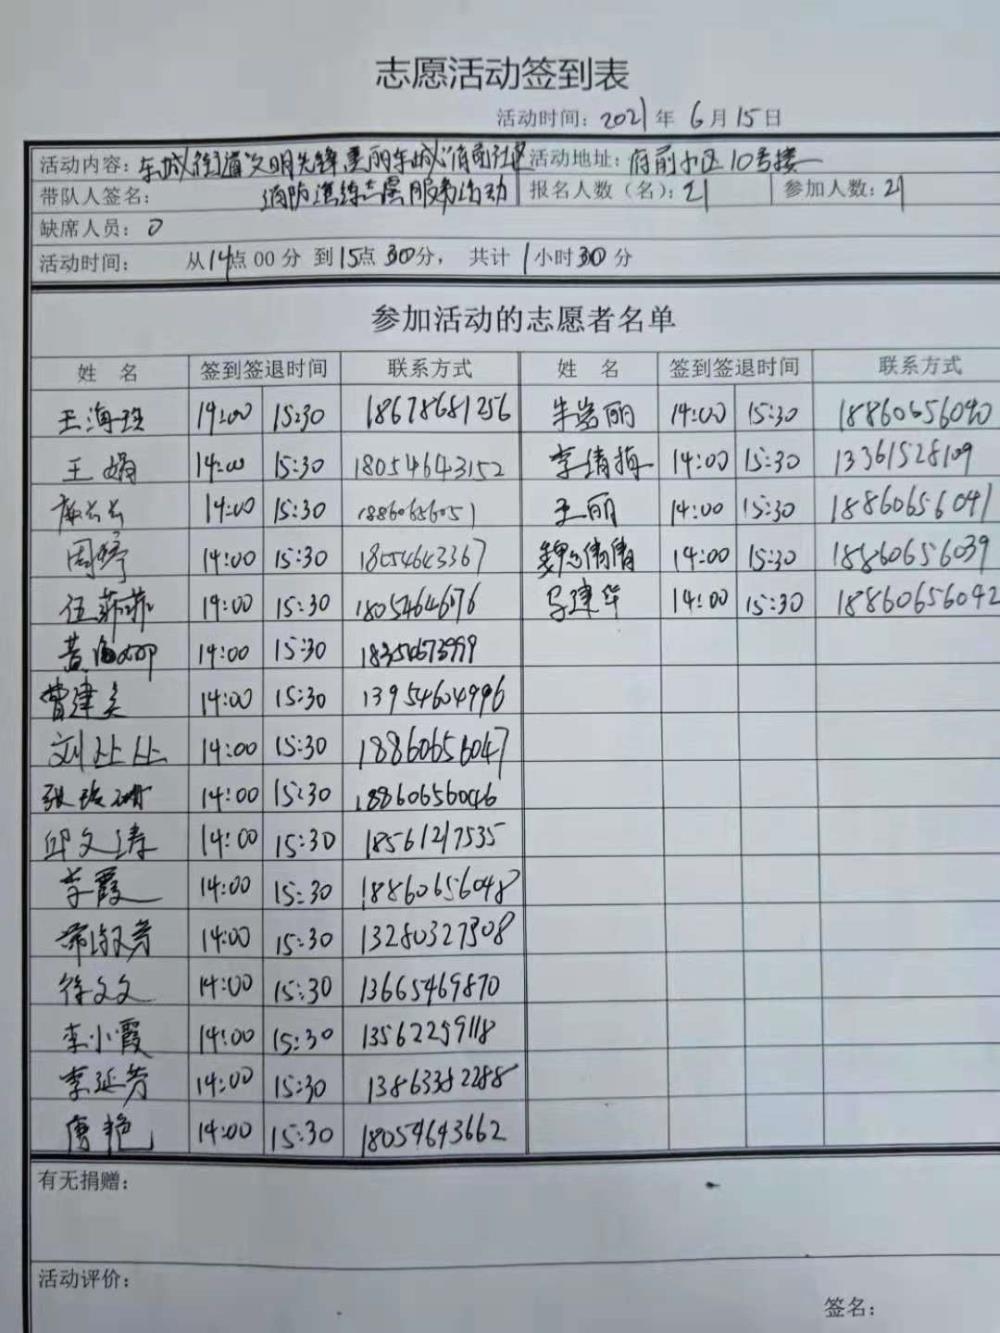 志愿活动签到表
活动时间：2021年6月15日
活动内容：东城街道"文明先锋 美丽东城"府前社区 活动地址：府前小区10号楼
带队人签名： 消防演练志愿服务活动 报名人数（名）：21 参加人数：21
缺席人员：0
活动时间： 从14点00分 到15点30分， 共计 1小时30分
参加活动的志愿者名单
姓 名 签到签退时间 联系方式 姓 名 签到签退时间 联系方式
王海 14:00 15:30 18678681256 丽 14:00 15:30 18860656040
王娟 14:00 15:30 18054643152 李倩梅 14:00 15:30 13361528109
14:00 15:30 18860656051 王丽 14:00 15:30 18860656041
周婷 14:00 15:30 18054643367 魏倩倩 14:00 15:30 18860656039
伍菲菲 14:00 15:30 建华 14:00 15:30 18860656042
黄海 14:00 15:30
曹建美 14:00 15:30 13954604996
刘 14:00 15:30 18860656047
张 14:00 15:30 18860656046
邱文涛 14:00 15:30 18561217535
李霞 14:00 15:30 18860656048
芳 14:00 15:30 13280327308
徐文文 14:00 15:30 13665469870
李小霞 14:00 15:30 13562259118
李延芳 14:00 15:30 13863382288
唐艳 14:00 15:30 18054643662
有无捐赠：
活动评价：
签名：